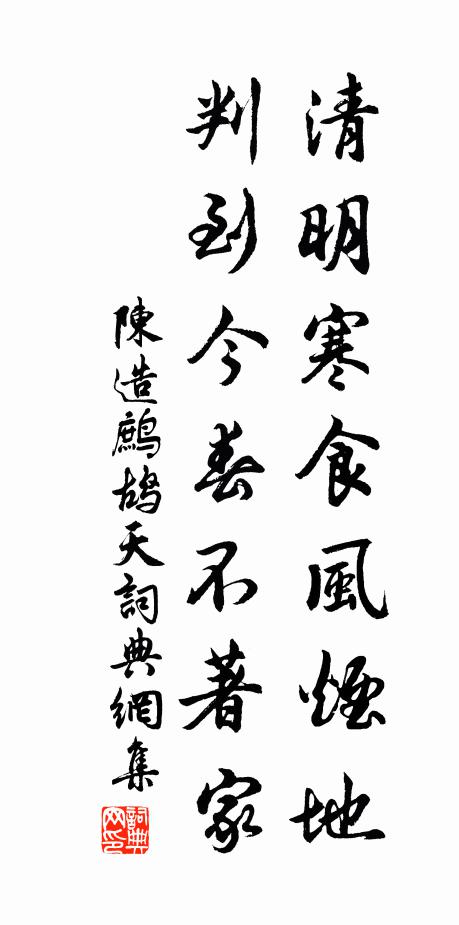 清明寒食風煙地
判到今春不著家
陳造鷓鴣天詞典網集
詞典網印